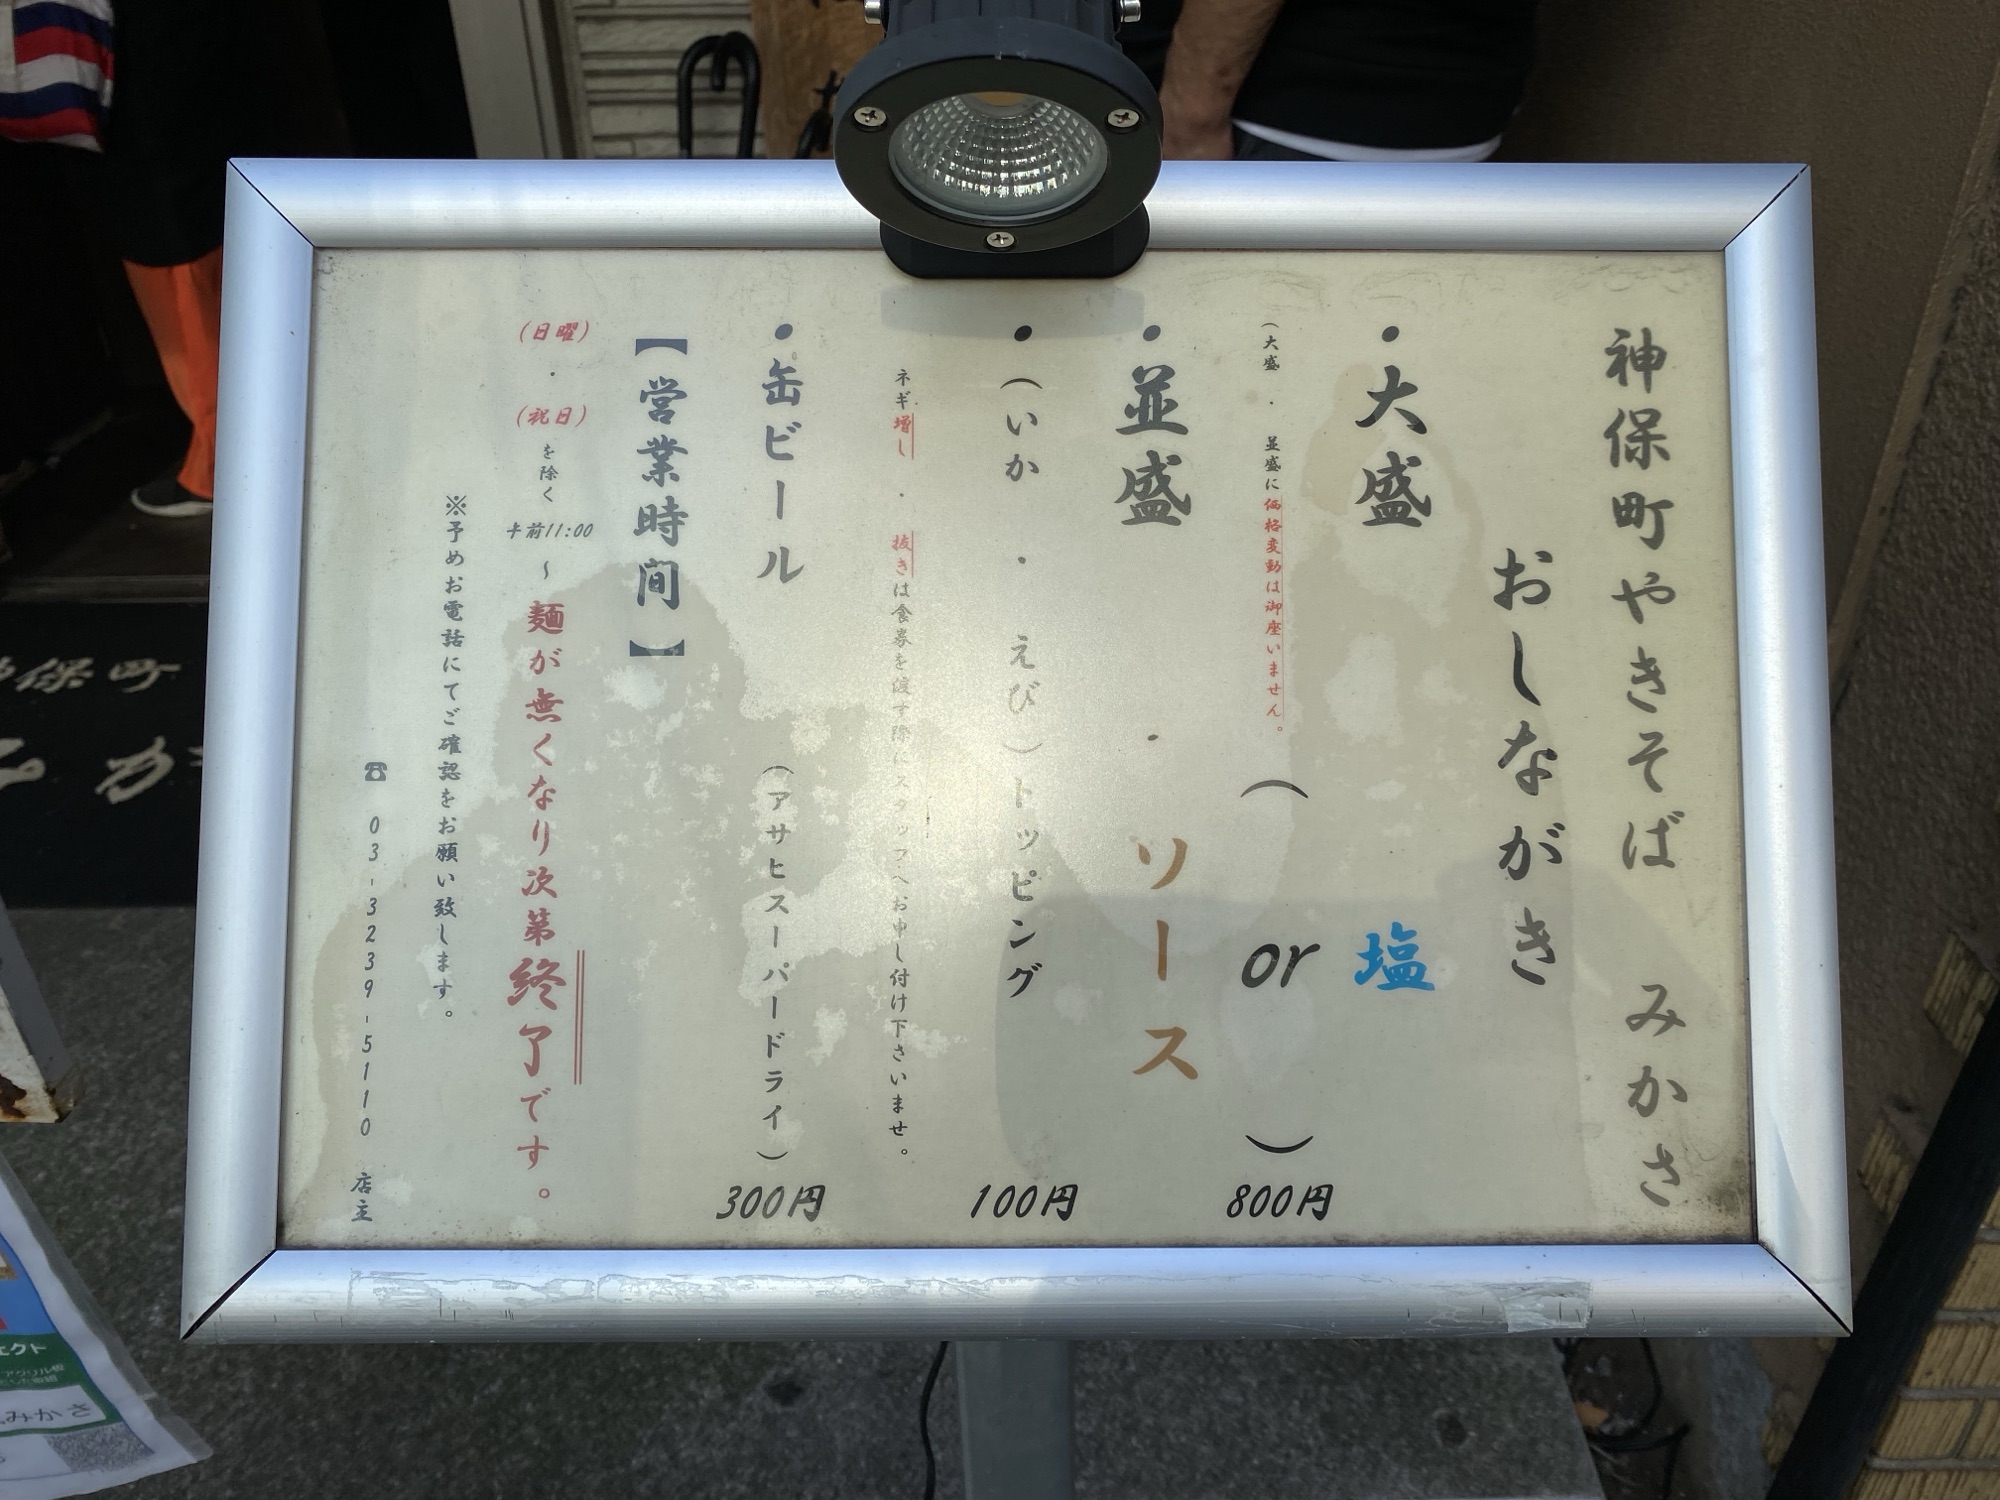 神保町やきそば　みかさ
おしながき
・大盛　塩
（大盛・並盛に価格変動は御座いません。
（or）800円
・並盛・ソース
・（いか・えび）トッピング　100円
ネギ増し・抜きは食券を渡す際にスタッフへお申し付け下さいませ。
・缶ビール（アサヒスーパードライ）300円
【営業時間】
（日曜）・（祝日）を除く午前11:00～麺が無くなり次第終了です。
※予めお電話にてご確認をお願い致します。
☎ 03-3239-5110　店主
保町
みかさ